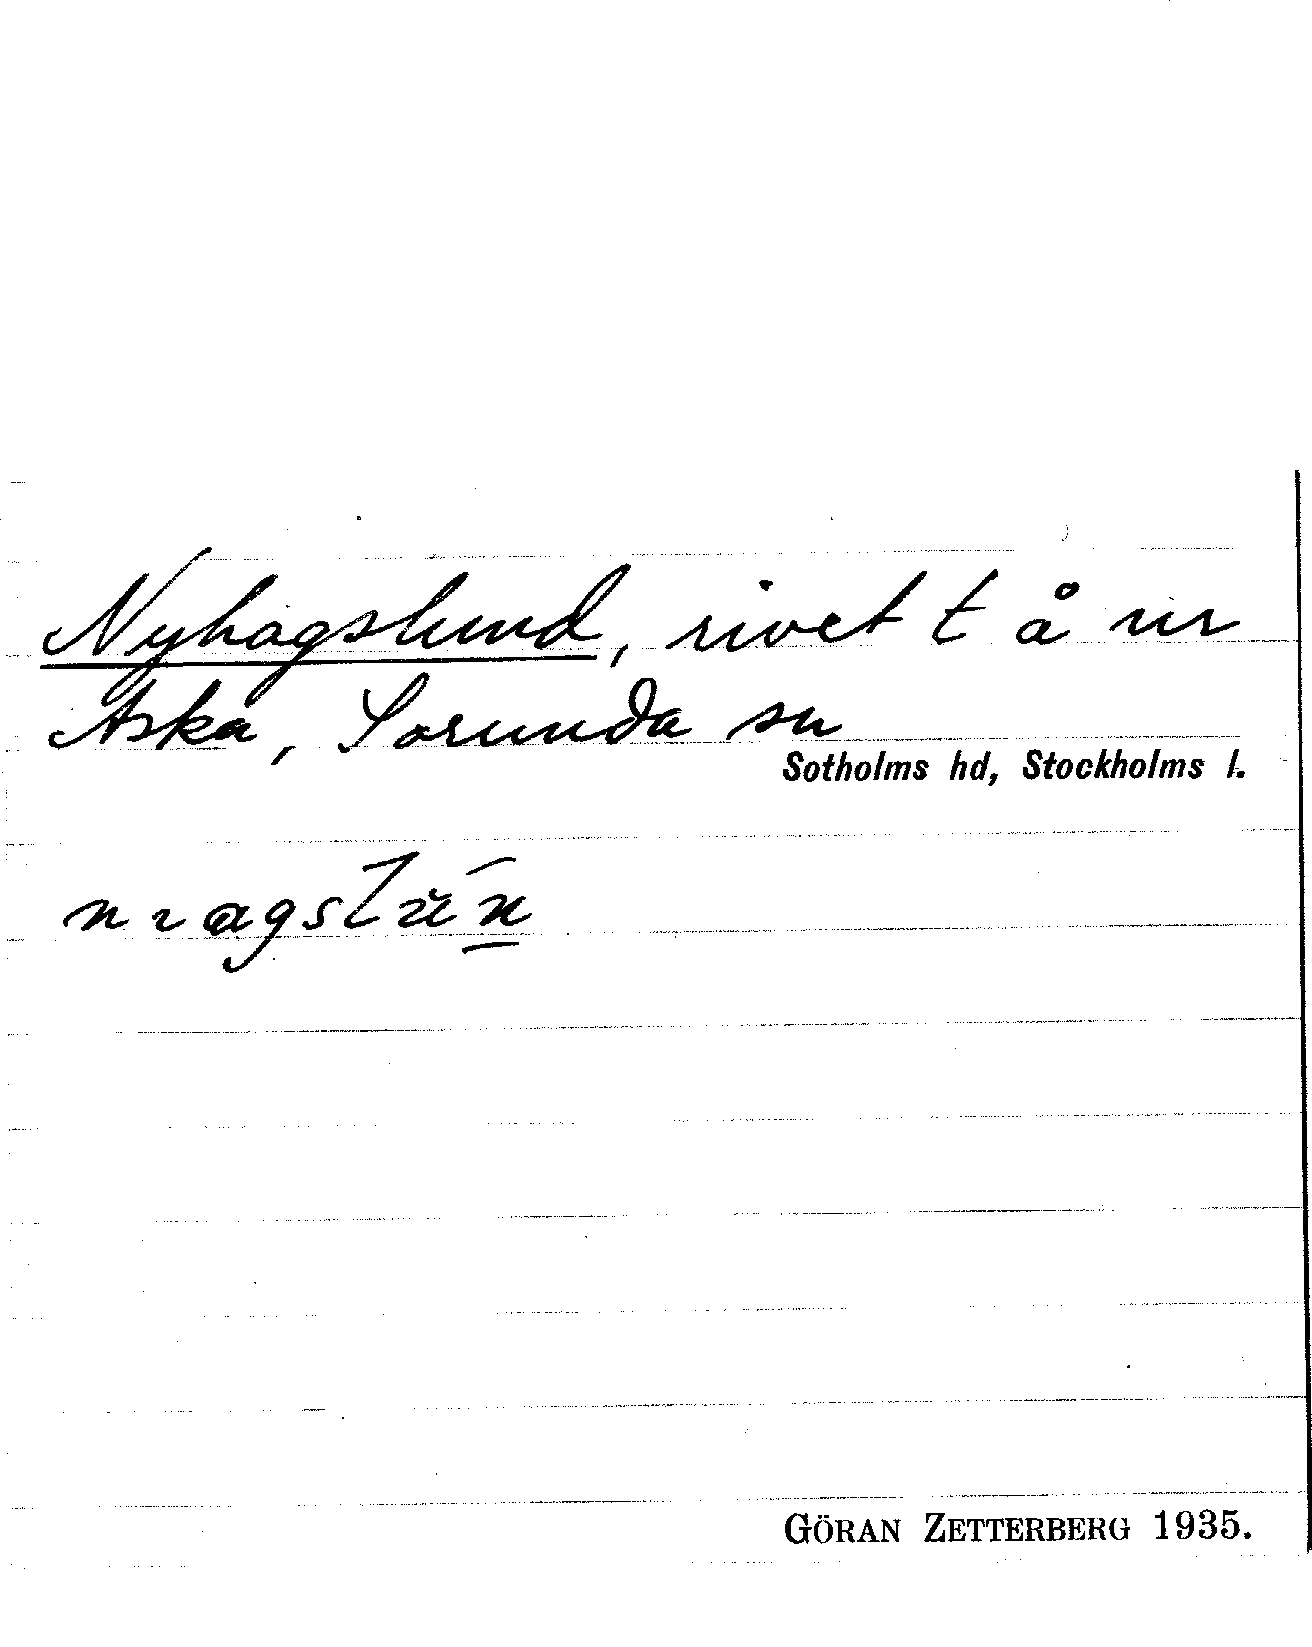 Nyhagslund, rivet t å ur
Aska, Sorunda sn
Sotholms hd, Stockholms l.
GÖRAN ZETTERBERG 1935.